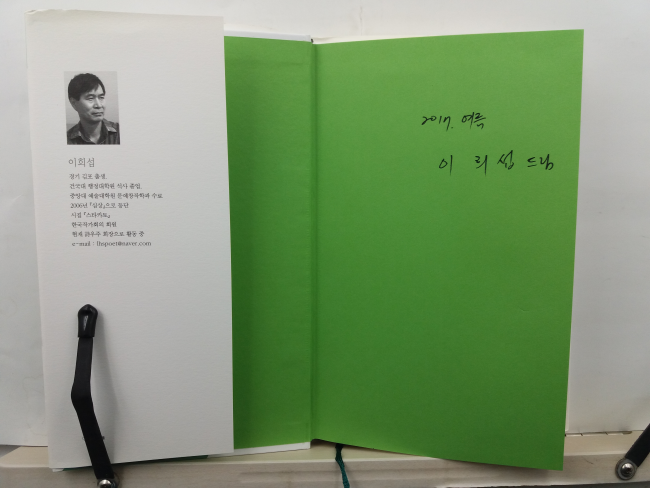 이희섭
경기 김포 출생.
건국대 행정대학원 석사 졸업.
중앙대 예술대학원 문예창작학과 수료
2006년 『심상』으로 등단
시집 『스타카토』
한국작가회의 회원
현재 詩우주 회장으로 활동 중
e-mail / lhspoet@naver.com
2017. 여름
이 희 섭 드림